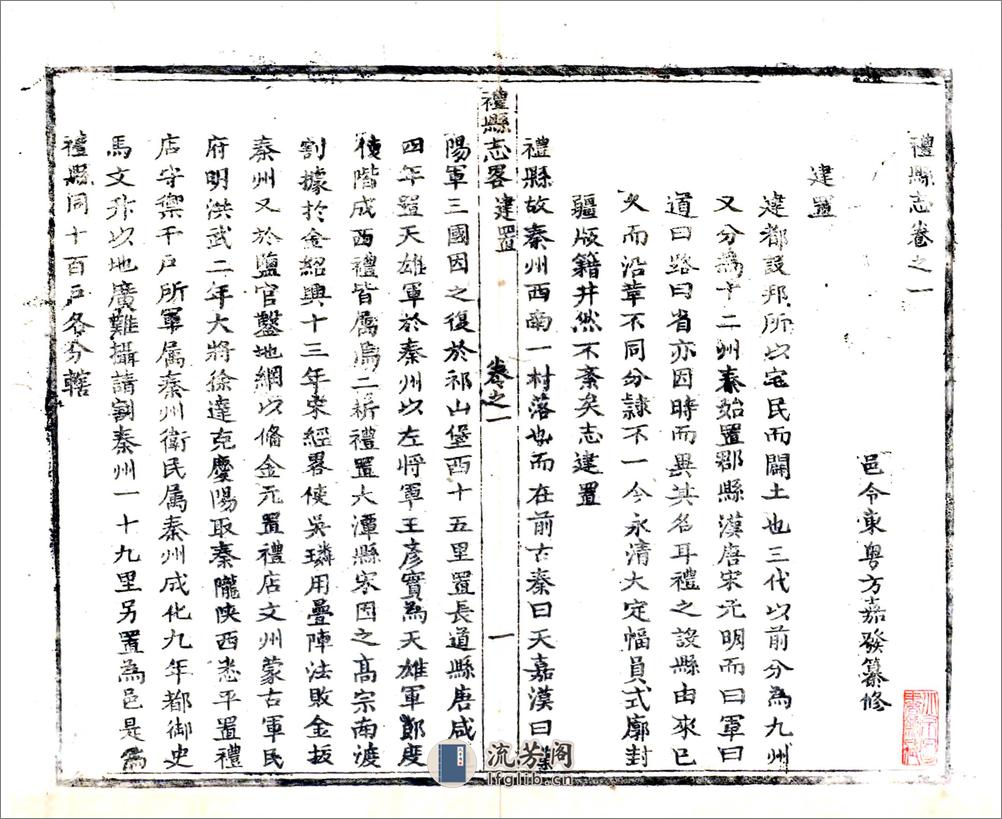 禮縣志卷之一
邑令東粵方嘉發纂修
建置
建都設邦所以宅民而闢土也三代以前分為九州
又分為十二州秦始置郡縣漢唐宋元明而曰軍曰
道曰路曰省亦因時而異其名耳禮之設縣由來已
久而沿革不同分隸不一今永清大定幅員式廓封
疆版籍井然不紊矣志建置
禮縣故秦州西南一村落也而在前古秦曰天嘉漢曰
禮縣志畧 建置 卷之一 一
陽軍三國因之復於祁山堡西十五里置長道縣唐咸
四年置天雄軍於秦州以左將軍王彥實為天雄軍節度
使階成西禮皆属焉二析禮置大潭縣宋因之高宗南渡
割據於金紹興十三年宋經畧使吳璘用疊陣法敗金拔
秦州又於鹽官鑿地網以俻金元置禮店文州蒙古軍民
府明洪武二年大將徐達克慶陽取秦隴陝西悉平置禮
店守禦千戶所軍属秦州衛民属秦州成化九年都御史
馬文升以地廣難攝請割秦州一十九里另置為邑是為
禮縣同十百戶各分轄
流芳阁
lfglib.cn